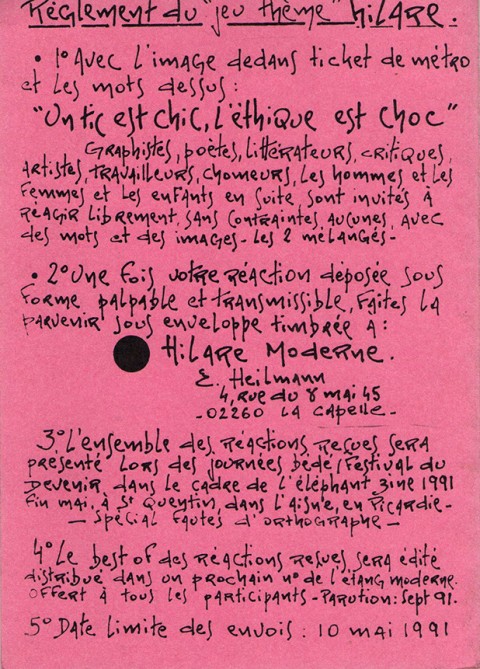 Règlement du "jeu thème" hilare.
• 1° Avec l'image dedans ticket de métro
et les mots dessus:
"Un tic est chic, l'éthique est choc"
Graphistes, poètes, littérateurs, critiques,
artistes, travailleurs, chomeurs, les hommes et les
femmes et les enfants en suite, sont invités à
réagir librement, sans contraintes aucunes, avec
des mots et des images - les 2 mélangés -
• 2° Une fois votre réaction déposée sous
forme palpable et transmissible, faites la
parvenir sous enveloppe timbrée à:
Hilare Moderne.
E. Heilmann
4, rue du 8 mai 45
- 02260 La Capelle -
3° L'ensemble des réactions reçues sera
présenté lors des journées bédé/Festival du
Devenir dans le cadre de l'éléphant zine 1991
fin mai, à St Quentin, dans l'Aisne, en Picardie -
- Spécial fautes d'orthographe -
4° Le best of des réactions reçues, sera édité
distribué dans un prochain n° de l'étang moderne.
offert à tous les participants - Parution: Sept 91.
5° Date limite des envois: 10 mai 1991